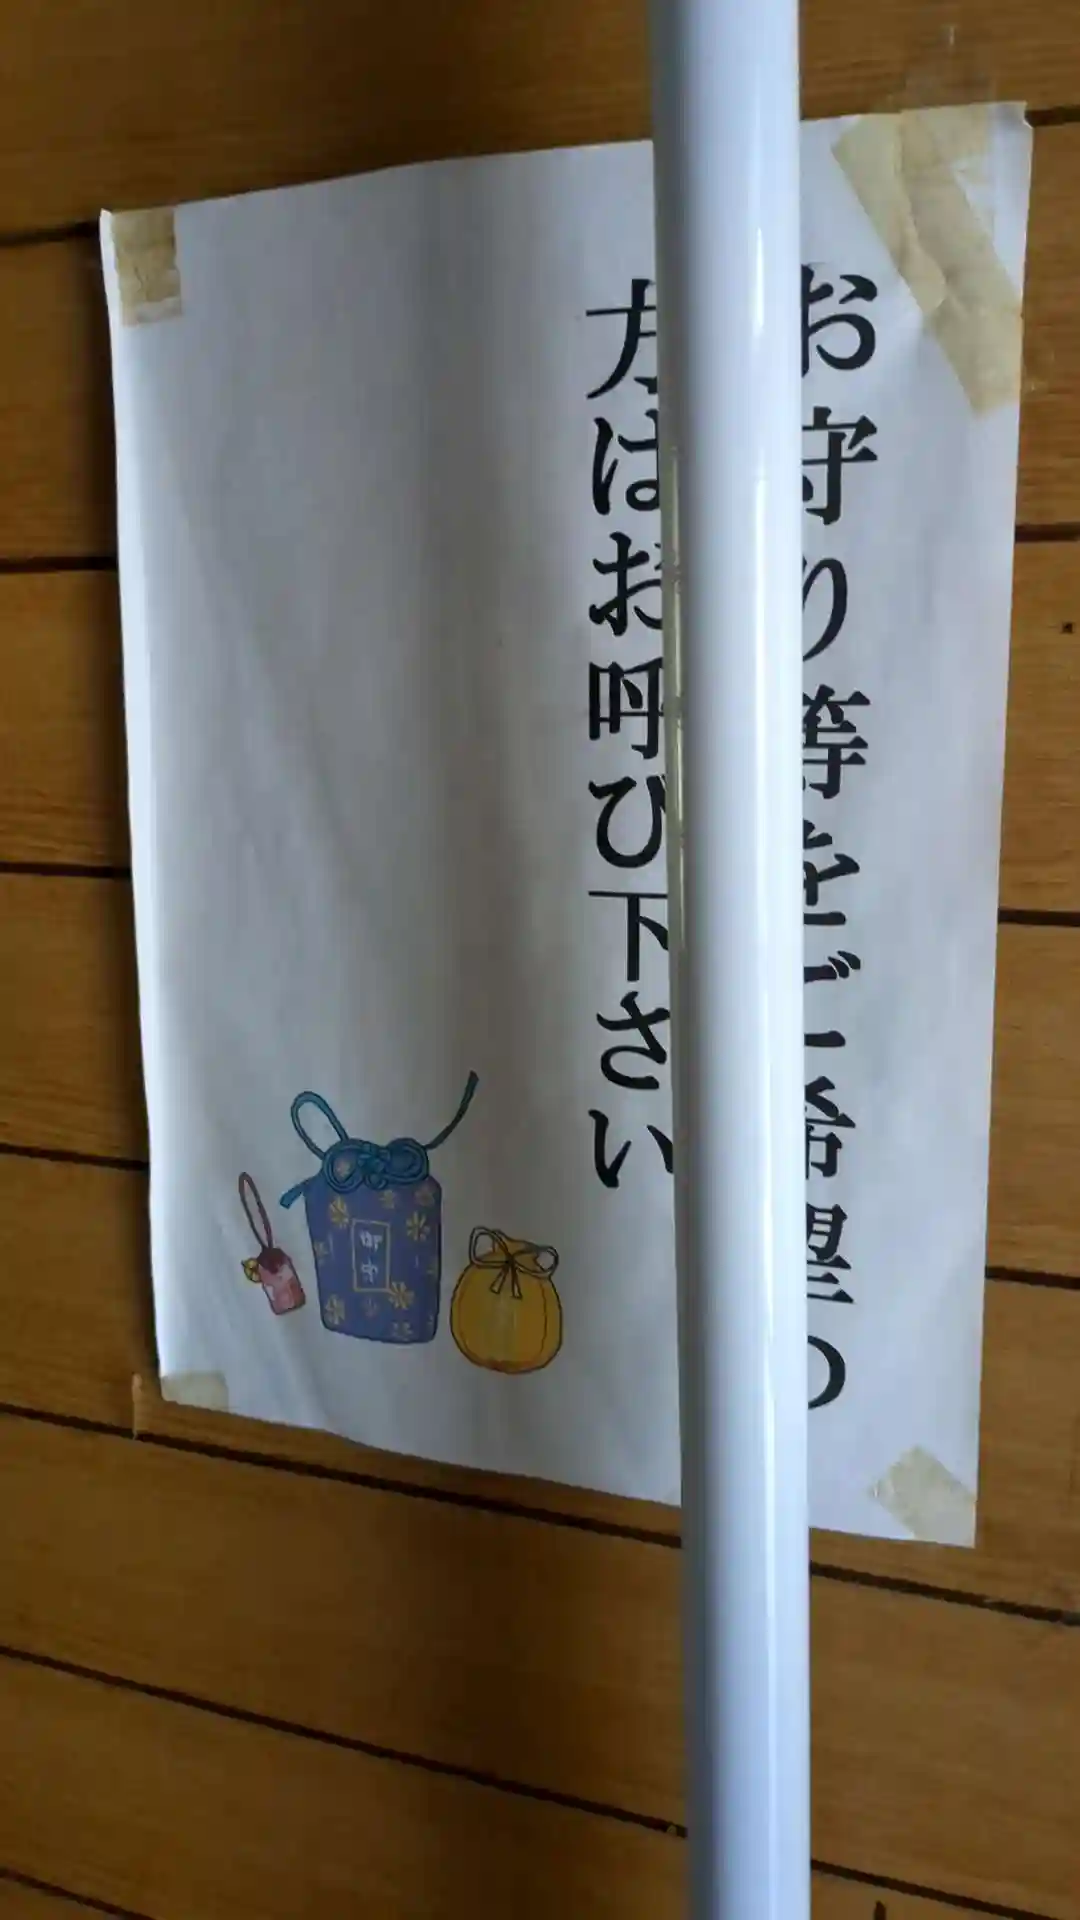 お守り等をご希望の
方はお呼び下さい
御守